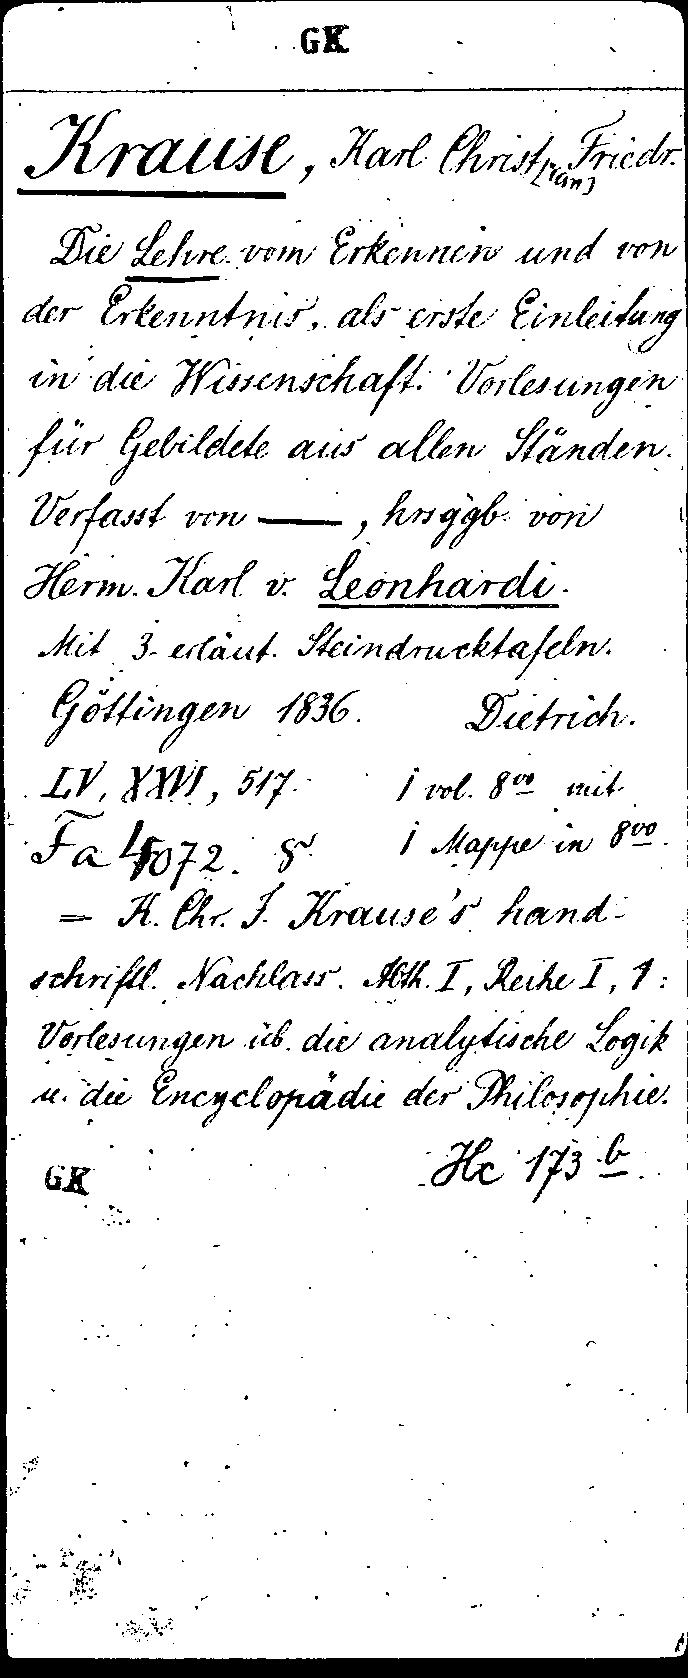 GK
Krause, Karl Christ[ian] Friedr.
Die Lehre vom Erkennen und von
der Erkenntnis, als erste Einleitung
in die Wissenschaft. Vorlesungen
für Gebildete aus allen Ständen.
Verfasst von —, hrsggb. von
Herm. Karl v. Leonhardi.
Mit 3 erläut. Steindrucktafeln.
Göttingen 1836. Dietrich.
LV, XXVI, 517. 1 vol. 8vo mit
Fa 4072. 8 1 Mappe in 8vo.
= K. Chr. F. Krause's hand-
schriftl. Nachlass. Abth. I, Reihe I, 1:
Vorlesungen üb. die analytische Logik
u. die Encyclopädie der Philosophie.
GK Hc 173 b